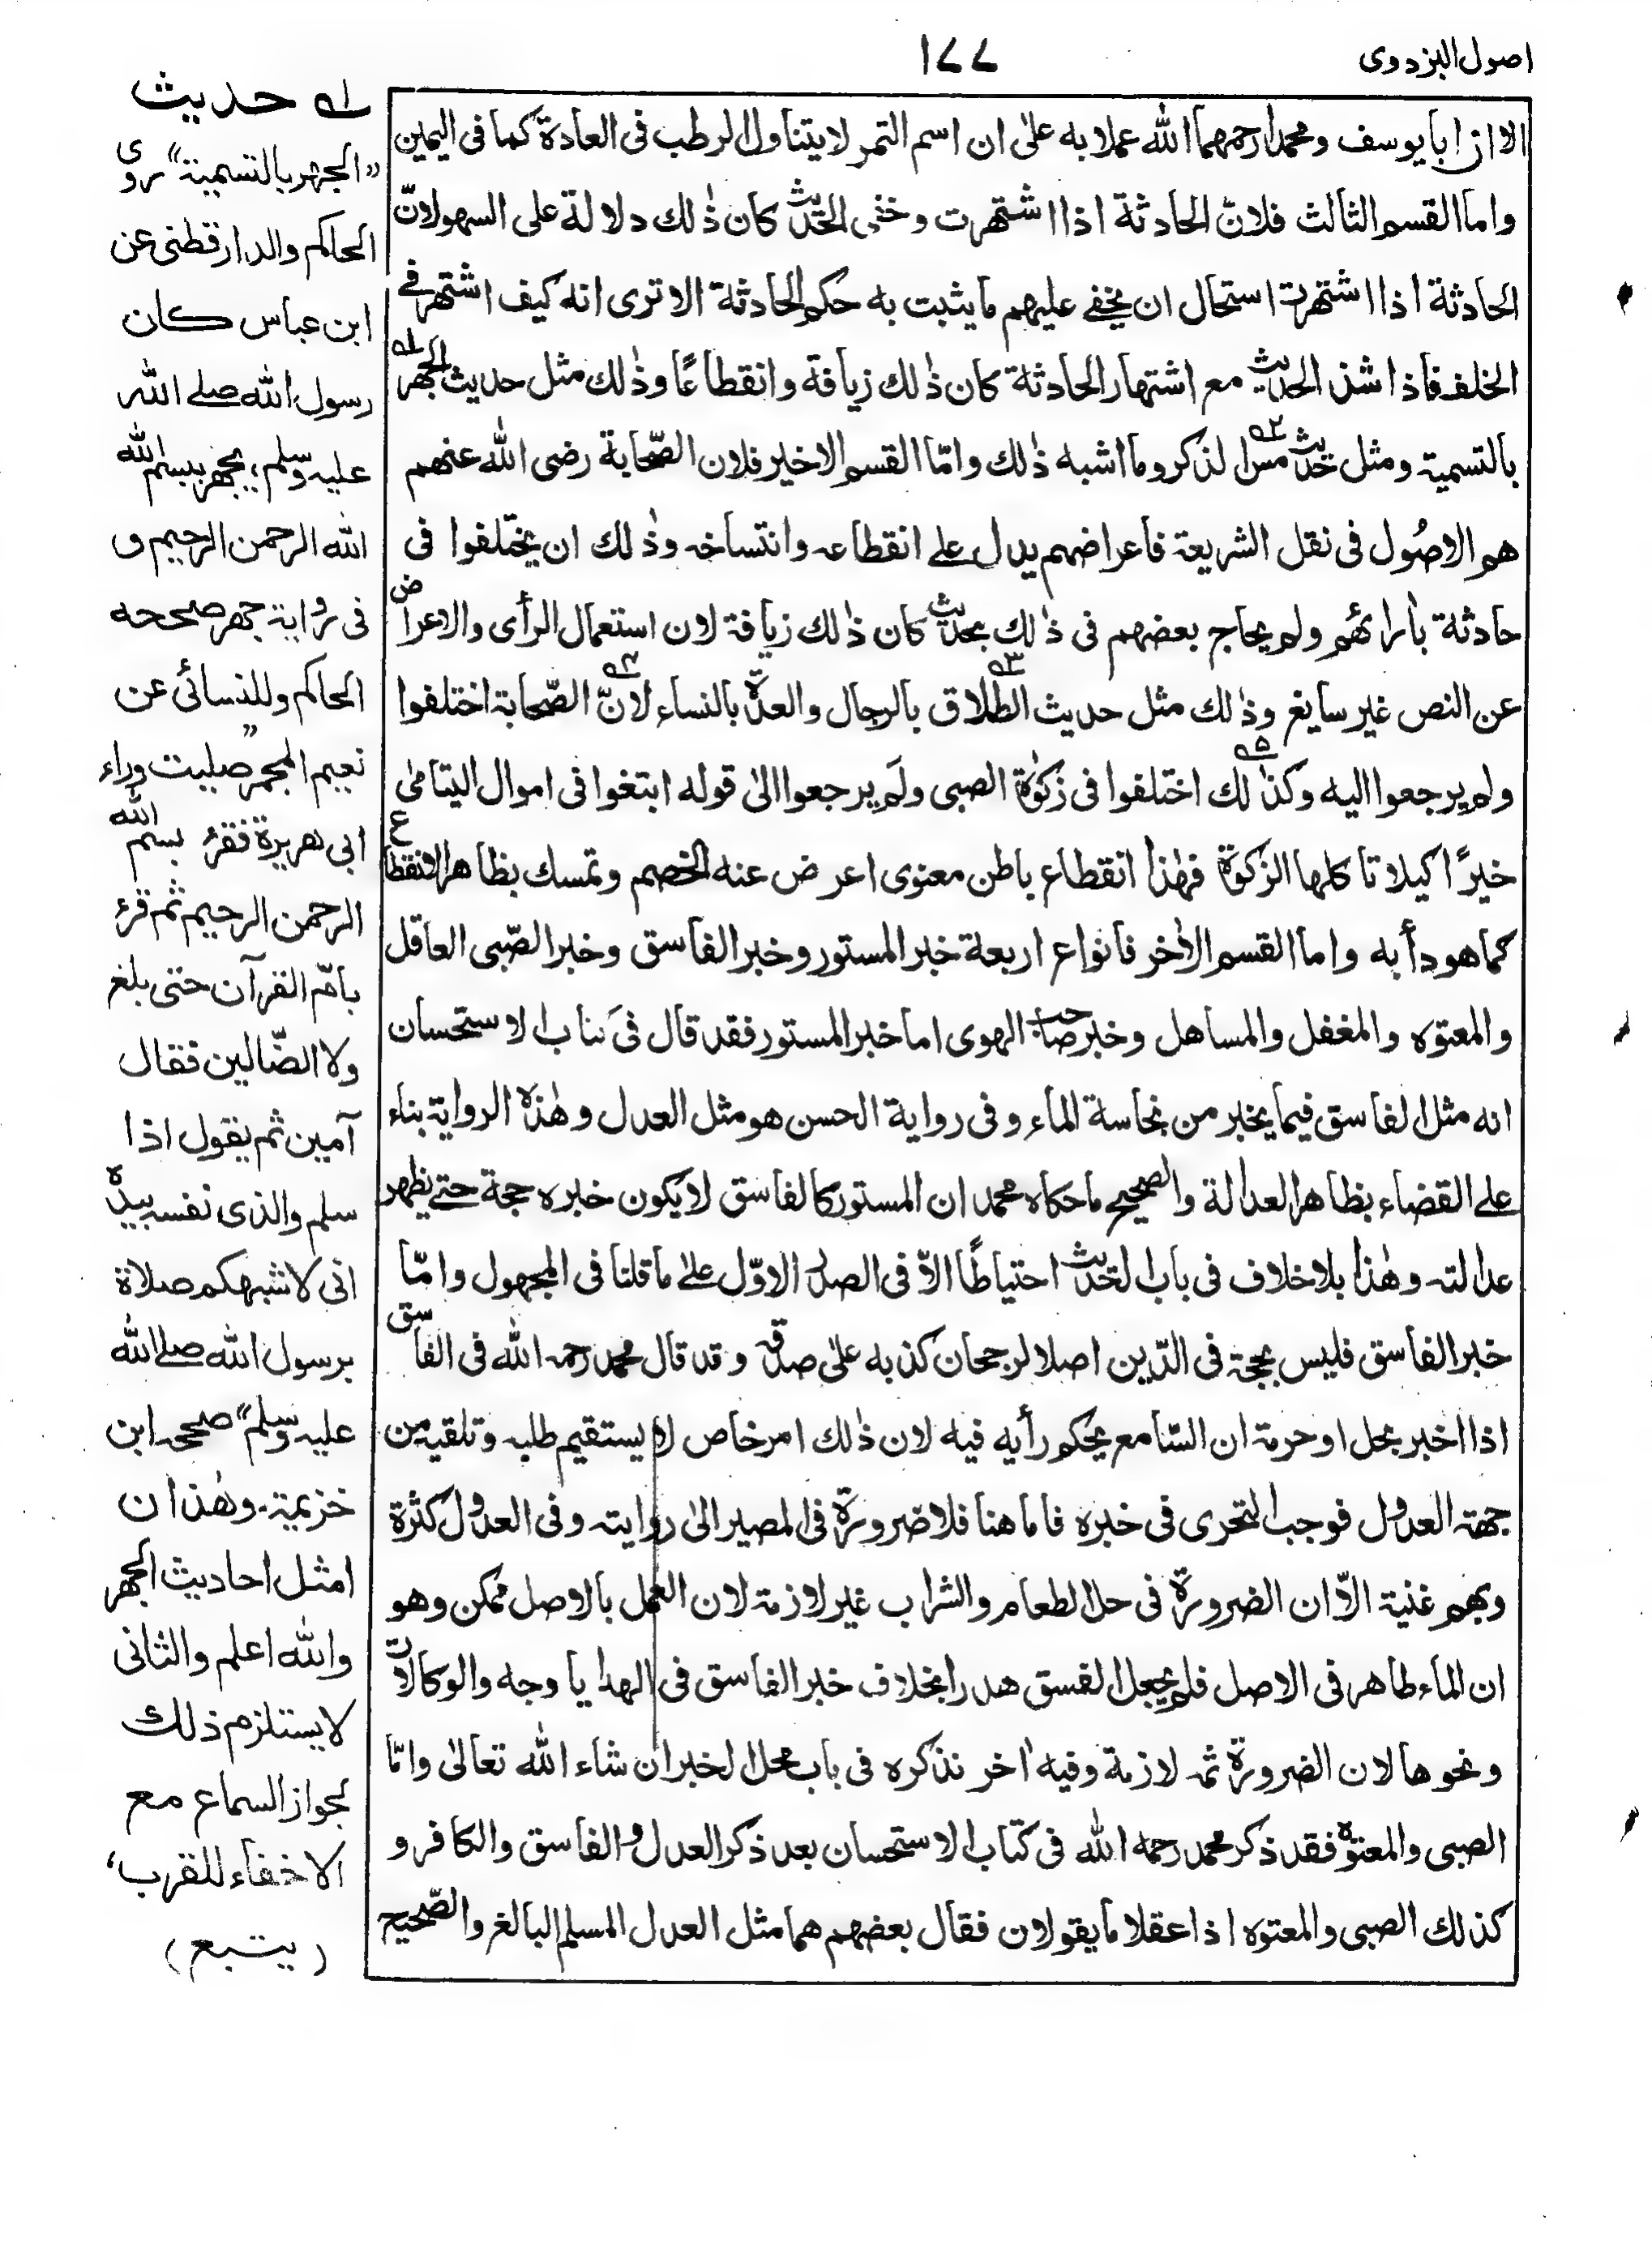 اصول البزدوى
١٧٧
الا ان ابا يوسف ومحمدا رحمهما الله عملا به علىٰ ان اسم التمر لا يتناول الرطب فى العادة كما فى اليمين
واما القسم الثالث فلانّ الحادثة اذا اشتهرت وخفى الحديث كان ذٰلك دلالة على السهو لانّ
الحادثة اذا اشتهرت استحال ان يخفے عليهم ما يثبت به حكم الحادثة الا ترى انه كيف اشتهر فے
الخلف فاذا شذ الحديث مع اشتهار الحادثة كان ذٰلك زيافة وانقطاعًا وذٰلك مثل حديث الجهر ١ـه
بالتسمية ومثل حديث مس ٢ـه الذكر وما اشبه ذٰلك وامّا القسم الاخير فلان الصّحابة رضى الله عنهم
هم الاصُول فى نقل الشريعة فاعراضهم يدل علے انقطاعه وانتساخه وذٰلك ان يختلفوا فى
حادثة باٰرائهم ولم يحاج بعضهم فى ذٰلك بحديث كان ذٰلك زيافة لان استعمال الرأى والاعراض
عن النص غير سايغ وذٰلك مثل حديث الطلاق ٣ـه بالرجال والعدّة بالنساء لانّ ٤ـه الصّحابة اختلفوا
ولم يرجعوا اليه وكذٰلك ٥ـه اختلفوا فى زكوٰة الصبى ولَم يرجعوا الىٰ قوله ابتغوا فى اموال اليتامىٰ
خيرًا كيلا تاكلها الزكوٰة فهٰذا انقطاع باطن معنوى اعرض عنه الخصم وتمسك بظاهر الانقطاع
كما هو دأبه واما القسم الاٰخر فانواع اربعة خبر المستور وخبر الفاسق وخبر الصّبى العاقل
والمعتوه والمغفل والمساهل وخبر صاحب الهوى اما خبر المستور فقد قال فى كتاب الاستحسان
انه مثل الفاسق فيما يخبر من نجاسة الماء وفى رواية الحسن هو مثل العدل وهٰذه الرواية بناء
علے القضاء بظاهر العدالة والصحيح ما حكاه محمد ان المستور كالفاسق لا يكون خبره حجة حتے يظهر
عدالته وهٰذا بلا خلاف فى باب الحديث احتياطًا الاّ فى الصدر الاوّل علےٰ ما قلنا فى المجهول وامّا
خبر الفاسق فليس بحجة فى الدّين اصلا لرجحان كذبه علىٰ صدقه وقد قال محمد رحمه الله فى الفاسق
اذا اخبر بحل او حرمة ان السّامع يحكم رأيه فيه لان ذٰلك امر خاص لا يستقيم طلبه وتلقيه من
جهة العدول فوجب التحرى فى خبره فاما هنا فلا ضرورة فى المصير الىٰ روايته وفى العدول كثرة
وبهم غنية الاّ ان الضرورة فى حل الطعام والشراب غير لازمة لان العمل بالاصل ممكن وهو
ان الماء طاهر فى الاصل فلم يجعل الفسق هدرا بخلاف خبر الفاسق فى الهدايا وجه والوكالات
ونحوها لان الضرورة ثمه لازمة وفيه اٰخر نذكره فى باب محل الخبر ان شاء الله تعالىٰ وامّا
الصبى والمعتوه فقد ذكر محمد رحمه الله فى كتاب الاستحسان بعد ذكر العدل والفاسق والكافر و
كذلك الصبى والمعتوه اذا عقلا ما يقولان فقال بعضهم هما مثل العدل المسلم البالغ والصّحيح
١ـه حديث
”الجهر بالتسمية“ روى
الحاكم والدارقطنى عن
ابن عباس كان
رسول الله صلے الله
عليه وسلم ؛ يجهر ببسم الله
الله الرحمن الرحيم و
فى رواية جهر صححه
الحاكم وللنسائى عن
نعيم المجمر ”صليت وراء
ابى هريرة فقرء بسم الله
الرحمن الرحيم ثم قرء
بامّ القرآن حتى بلغ
ولا الضّالين فقال
آمين ثم يقول اذا
سلم والذى نفسه بيده
انى لاشبهكم صلاة
برسول الله صلے الله
عليه وسلم“ صححه ابن
خزيمة۔ وهٰذان
امثل احاديث الجهر
والله اعلم والثانى
لا يستلزم ذلك
لجواز السماع مع
الاخفاء للقرب،
(يتبع)